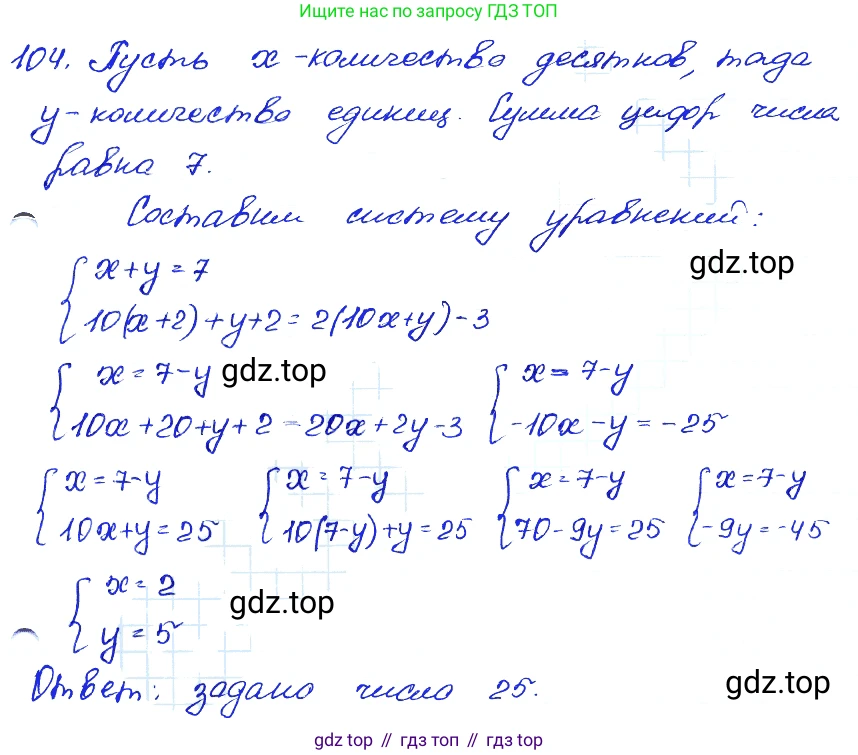 Ищите нас по запросу ГДЗ ТОП
104. Пусть x - количество десятков, тогда
y - количество единиц. Сумма цифр числа
равна 7.
Составим систему уравнений:
{ x + y = 7
10(x+2) + y + 2 = 2(10x+y) - 3
gdz.top
{ x = 7 - y
10x + 20 + y + 2 = 20x + 2y - 3
gdz.top
{ x = 7 - y
-10x - y = -25
{ x = 7 - y
10x + y = 25
{ x = 7 - y
10(7-y) + y = 25
{ x = 7 - y
70 - 9y = 25
{ x = 7 - y
-9y = -45
{ x = 2
y = 5
gdz.top
Ответ: задано число 25.
gdz.top
gdz top // гдз топ // gdz top